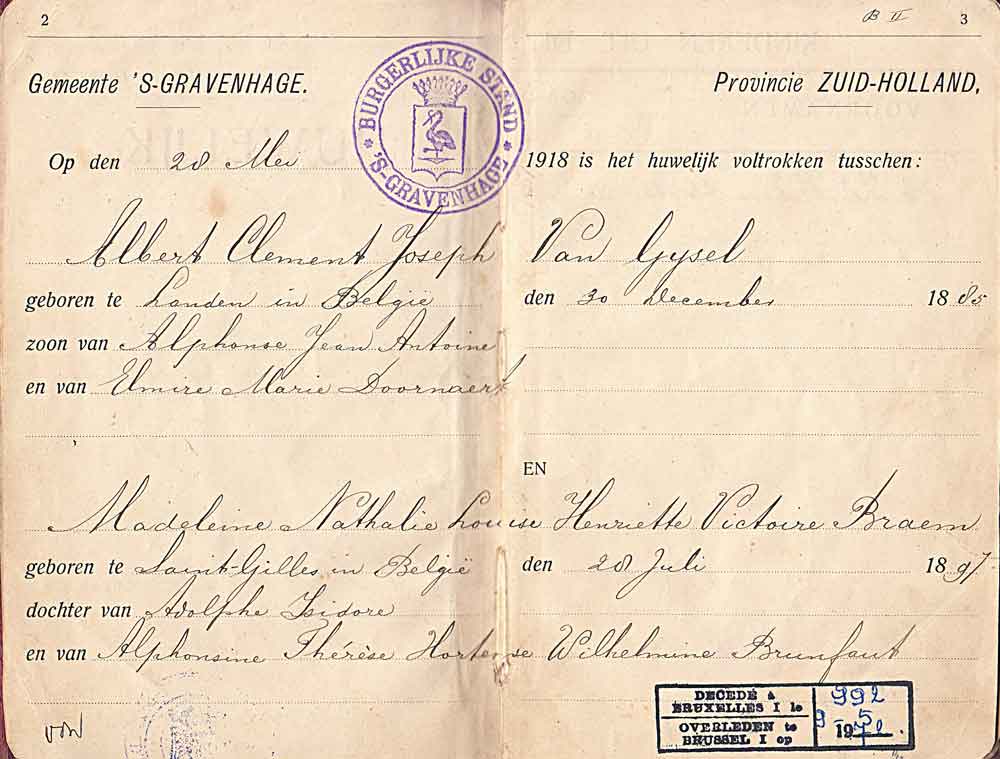 2
B II 3
Gemeente 'S-GRAVENHAGE.
Provincie ZUID-HOLLAND,
BURGERLIJKE STAND
* 'S-GRAVENHAGE *
Op den 28 Mei 1918 is het huwelijk voltrokken tusschen:
Albert Clement Joseph Van Gysel
geboren te Landen in België den 30 December 1885
zoon van Alphonse Jean Antoine
en van Elmire Marie Doornaert
EN
Madeleine Nathalie Louise Henriette Victoire Braem
geboren te Saint-Gilles in België den 28 Juli 1897
dochter van Adolphe Isidore
en van Alphonsine Thérèse Hortense Wilhelmine Brunfaut
DECEDE à
BRUXELLES I le
OVERLEDEN te
BRUSSEL I op
992
9-5
1972